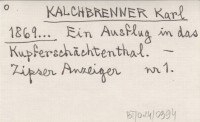 KALCHBRENNER Karl
1869... Ein Ausflug in das
Kupferschächtenthal. —
Zipser Anzeiger nr 1.